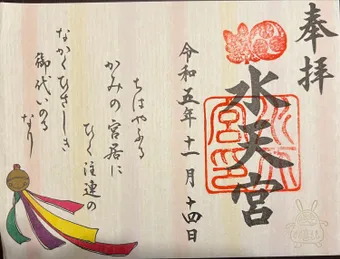 奉拝
水天宮
令和五年十一月十四日
ちはやふる
かみの宮居に
ひく注連の
なかくひさしき
御代いのる
なり